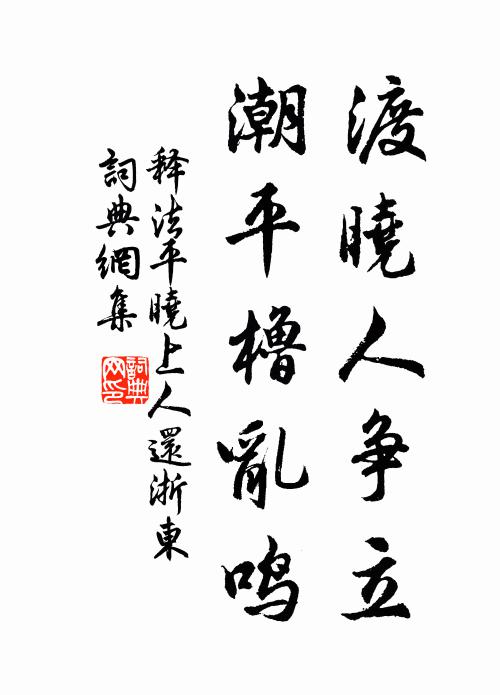 渡曉人争立
潮平櫓亂鸣
释法平曉上人還浙東
詞典網集
詞典
网印